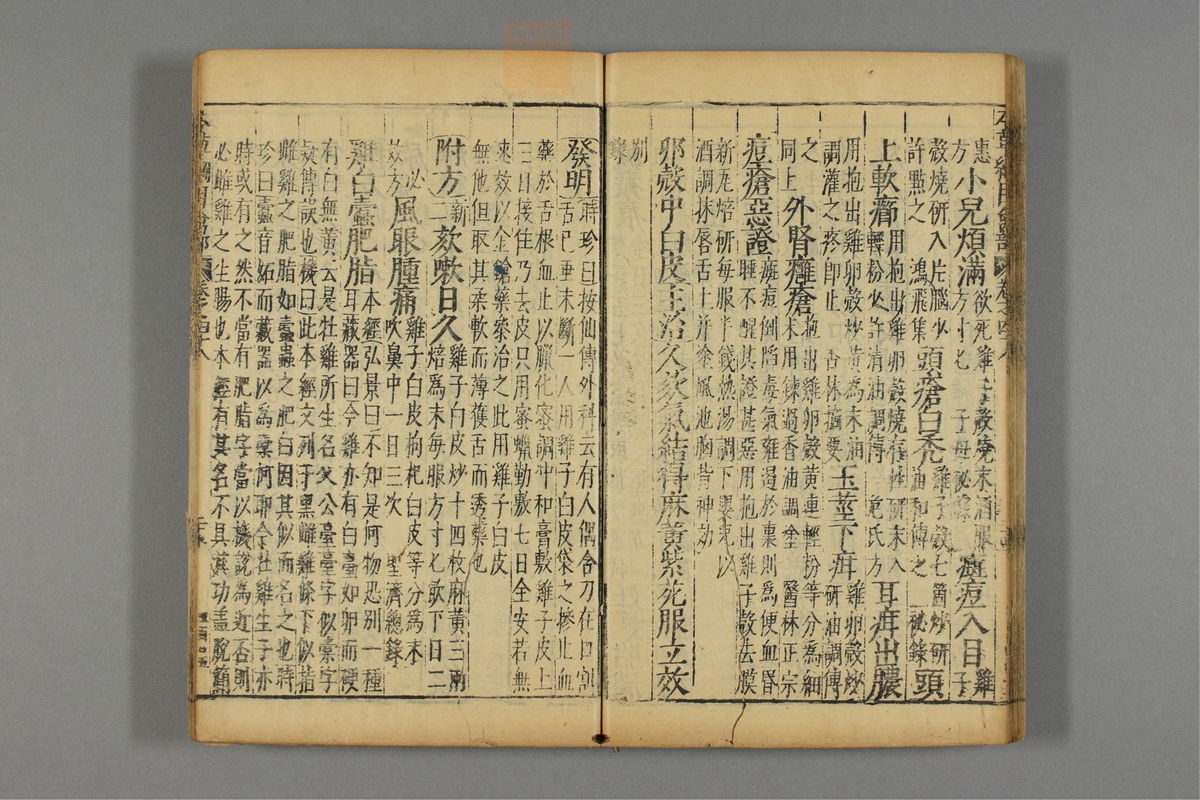 本草綱目禽部 卷之四十八
惠方 小兒煩滿 欲死雞子殼燒末酒服方寸匕 子母秘錄 癍痘入目 雞子
殼燒研入片腦少許點之 鴻飛集 頭瘡白禿 雞子殼七箇炒研油和傅之 秘錄 頭
上軟癤 用抱出雞卵殼燒存性研末入輕粉少許清油調傅 危氏方 耳疳出膿
用抱出雞卵殼炒黃為末油調灌之疼即止 杏林摘要 玉莖下疳 雞卵殼炒研油調傅
之同上 外腎癰瘡 抱出雞卵殼黃連輕粉等分為細末用鍊過香油調塗 醫林正宗
痘瘡惡證 癍痘倒陷毒氣壅遏於裏則為便血昏睡不醒其證甚惡用抱出雞子殼去膜
新瓦焙研每服半錢熱湯調下嬰兒以酒調抹唇舌上并塗風池胸背神効
卵殼中白皮主治久欬氣結得麻黃紫菀服立效
別錄
發明 時珍曰按仙傳外科云有人偶含刀在口割舌已垂未斷一人用雞子白皮袋之摻止血
藥於舌根血止以蠟化蜜調沖和膏敷雞子皮上三日接住乃去皮只用蜜蠟勤敷七日全安若無
速效以金鎗藥參治之此用雞子白皮無他但取其柔軟而薄護舌而透藥也
附方 新二 欬嗽日久 雞子白皮炒十四枚麻黃三兩焙為末每服方寸匕飲下日二
必效方 風眼腫痛 雞子白皮枸杞白皮等分為末吹鼻中一日三次 聖濟總錄
雞白蠹肥脂 本經弘景曰不知是何物恐別一種耳藏器曰今雞亦有白臺如卵而硬
有白無黃云是牡雞所生名父公臺臺字似橐字疑傳誤也機曰此本經文列于黑雌雞條下似指
雌雞之肥脂如蠹蟲之肥白因其似而名之也時珍曰蠹音妬而藏器以為橐何耶今牡雞生子亦
時或有之然不當有肥脂字當以機說為近否則必雌雞之生腸也本經有其名不具其功蓋脫簡
本草綱目禽部 卷之四十八